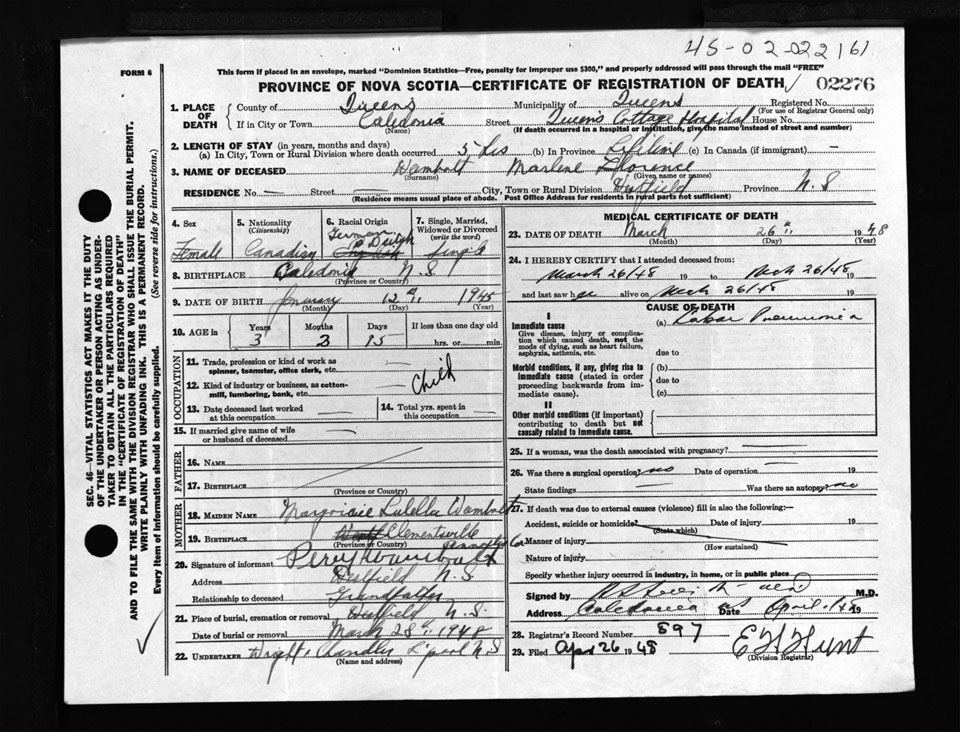 45-02-022161
FORM 6
This form if placed in an envelope, marked "Dominion Statistics—Free, penalty for improper use $300," and properly addressed will pass through the mail "FREE"
PROVINCE OF NOVA SCOTIA—CERTIFICATE OF REGISTRATION OF DEATH 02276
1. PLACE OF DEATH County of Queens Municipality of Queens Registered No.
(For use of Registrar General only)
If in City or Town Caledonia Street Queens Cottage Hospital House No.
(Name) (If death occurred in a hospital or institution, give the name instead of street and number)
2. LENGTH OF STAY (in years, months and days)
(a) In City, Town or Rural Division where death occurred (b) In Province Lifetime (c) In Canada (if immigrant) —
3. NAME OF DECEASED Wambolt Marlene Florence
(Surname) (Given name or names)
RESIDENCE No. — Street — City, Town or Rural Division Westfield Province N.S
(Residence means usual place of abode. Post Office Address for residents in rural parts not sufficient)
4. Sex Female
5. Nationality (Citizenship) Canadian
6. Racial Origin German
7. Single, Married, Widowed or Divorced (write the word) Single
8. BIRTHPLACE Caledonia N.S
(Province or Country)
9. DATE OF BIRTH January 12 1945
(Month) (Day) (Year)
10. AGE in Years Months Days If less than one day old
3 15 hrs. or min.
OCCUPATION
11. Trade, profession or kind of work as spinner, teamster, office clerk, etc. —
12. Kind of industry or business, as cotton-mill, lumbering, bank, etc. — Child
13. Date deceased last worked at this occupation —
14. Total yrs. spent in this occupation —
15. If married give name of wife or husband of deceased —
FATHER
16. Name —
17. Birthplace —
(Province or Country)
MOTHER
18. Maiden Name Marjorie Luella Wambolt
19. Birthplace Clementsville Annapolis Co
(Province or Country)
20. Signature of informant Percy Wambolt
Address Westfield N.S
Relationship to deceased Grandfather
21. Place of burial, cremation or removal Westfield N.S.
Date of burial or removal March 28 1948
22. UNDERTAKER Wright & Chandler L'pool N.S
(Name and address)
MEDICAL CERTIFICATE OF DEATH
23. DATE OF DEATH March 26 1948
(Month) (Day) (Year)
24. I HEREBY CERTIFY that I attended deceased from:
March 26/48 19 to Mch 26/48 19
and last saw her alive on Mch 26/48 19
CAUSE OF DEATH
I
Immediate cause
Give disease, injury or complication which caused death, not the mode of dying, such as heart failure, asphyxia, asthenia, etc.
(a) Lobar Pneumonia
due to
Morbid conditions, if any, giving rise to immediate cause (stated in order proceeding backwards from immediate cause).
(b)
due to
(c)
II
Other morbid conditions (if important) contributing to death but not causally related to immediate cause.
25. If a woman, was the death associated with pregnancy? —
26. Was there a surgical operation? no Date of operation — 19
State findings — Was there an autopsy? no
27. If death was due to external causes (violence) fill in also the following:—
Accident, suicide or homicide? Date of injury 19
(State which)
Manner of injury
(How sustained)
Nature of injury
Specify whether injury occurred in industry, in home, or in public place
Signed by M.D.
Address Caledonia NS Date April 1/48 19
28. Registrar's Record Number 897
29. Filed Apr 26 1948 E H Hunt
(Division Registrar)
SEC. 46—VITAL STATISTICS ACT MAKES IT THE DUTY
OF THE UNDERTAKER OR PERSON ACTING AS UNDER-
TAKER TO OBTAIN ALL THE PARTICULARS REQUIRED
IN THE "CERTIFICATE OF REGISTRATION OF DEATH"
AND TO FILE THE SAME WITH THE DIVISION REGISTRAR WHO SHALL ISSUE THE BURIAL PERMIT.
WRITE PLAINLY WITH UNFADING INK. THIS IS A PERMANENT RECORD.
Every item of information should be carefully supplied. (See reverse side for instructions.)